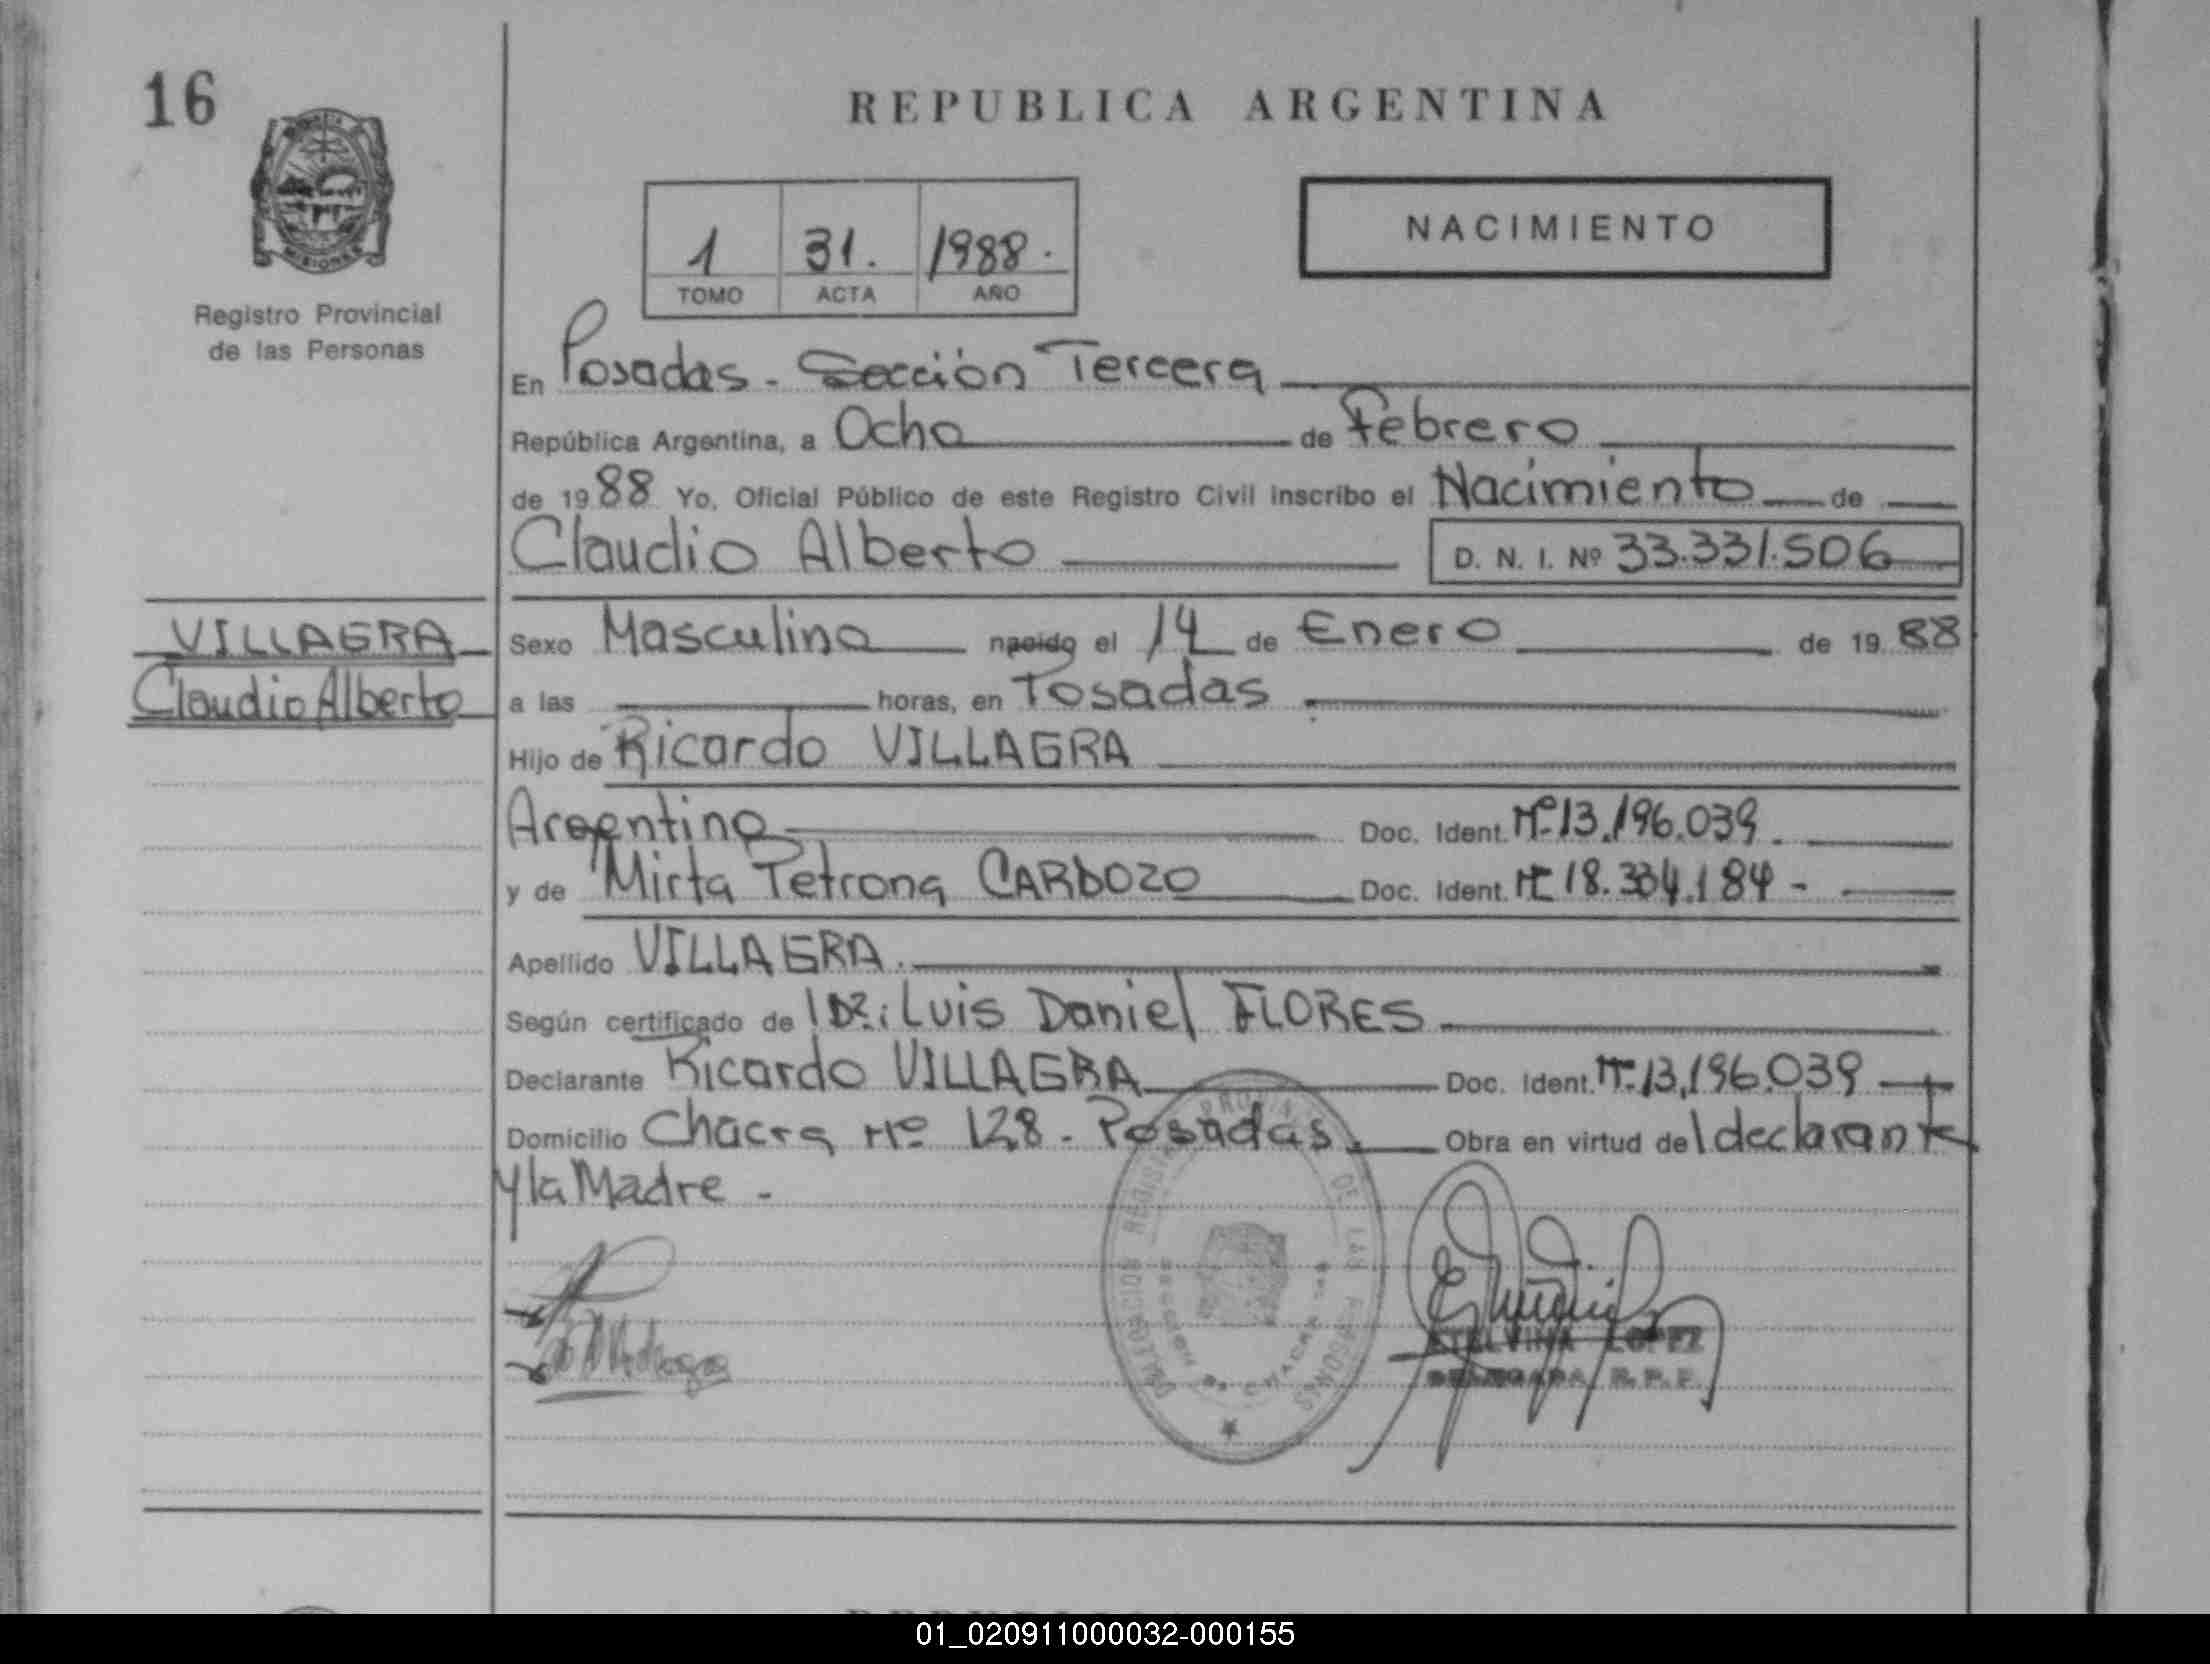 16
REPUBLICA ARGENTINA
NACIMIENTO
1 31. 1988.
TOMO ACTA AÑO
MISIONES
Registro Provincial
de las Personas
En Posadas - Sección Tercera
República Argentina, a Ocho de Febrero
de 1988 Yo, Oficial Público de este Registro Civil inscribo el Nacimiento de
Claudio Alberto D. N. I. Nº 33.331.506
VILLAGRA
Claudio Alberto
Sexo Masculino nacido el 14 de Enero de 1988
a las horas, en Posadas
Hijo de Ricardo VILLAGRA
Argentino Doc. Ident. Nº 13.196.039.
y de Mirta Petrona CARDOZO Doc. Ident. Nº 18.334.184 -
Apellido VILLAGRA.
Según certificado de l DR: Luis Daniel FLORES
Declarante Ricardo VILLAGRA Doc. Ident. Nº 13.196.039
Domicilio Chacra Nº 128 - Posadas. Obra en virtud del declarante
y la Madre -
REGISTRO PROVINCIAL DE LAS PERSONAS
ETELVINA LOPEZ
DELEGADA R. P. P.
01_020911000032-000155